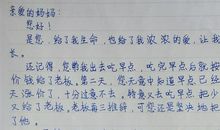 亲爱的妈妈:
您好!
是您,给了我生命,也给了我浓浓的爱,让我
长。
还记得,您带我出去吃早点,吃完早点后就按
价给了老板。第二天,您无意中知道早点已经
天涨价了,十分过意不去。特意又去吃早点,把少
又给了老板。老板再三推辞,可您还是坚决地把
了他。